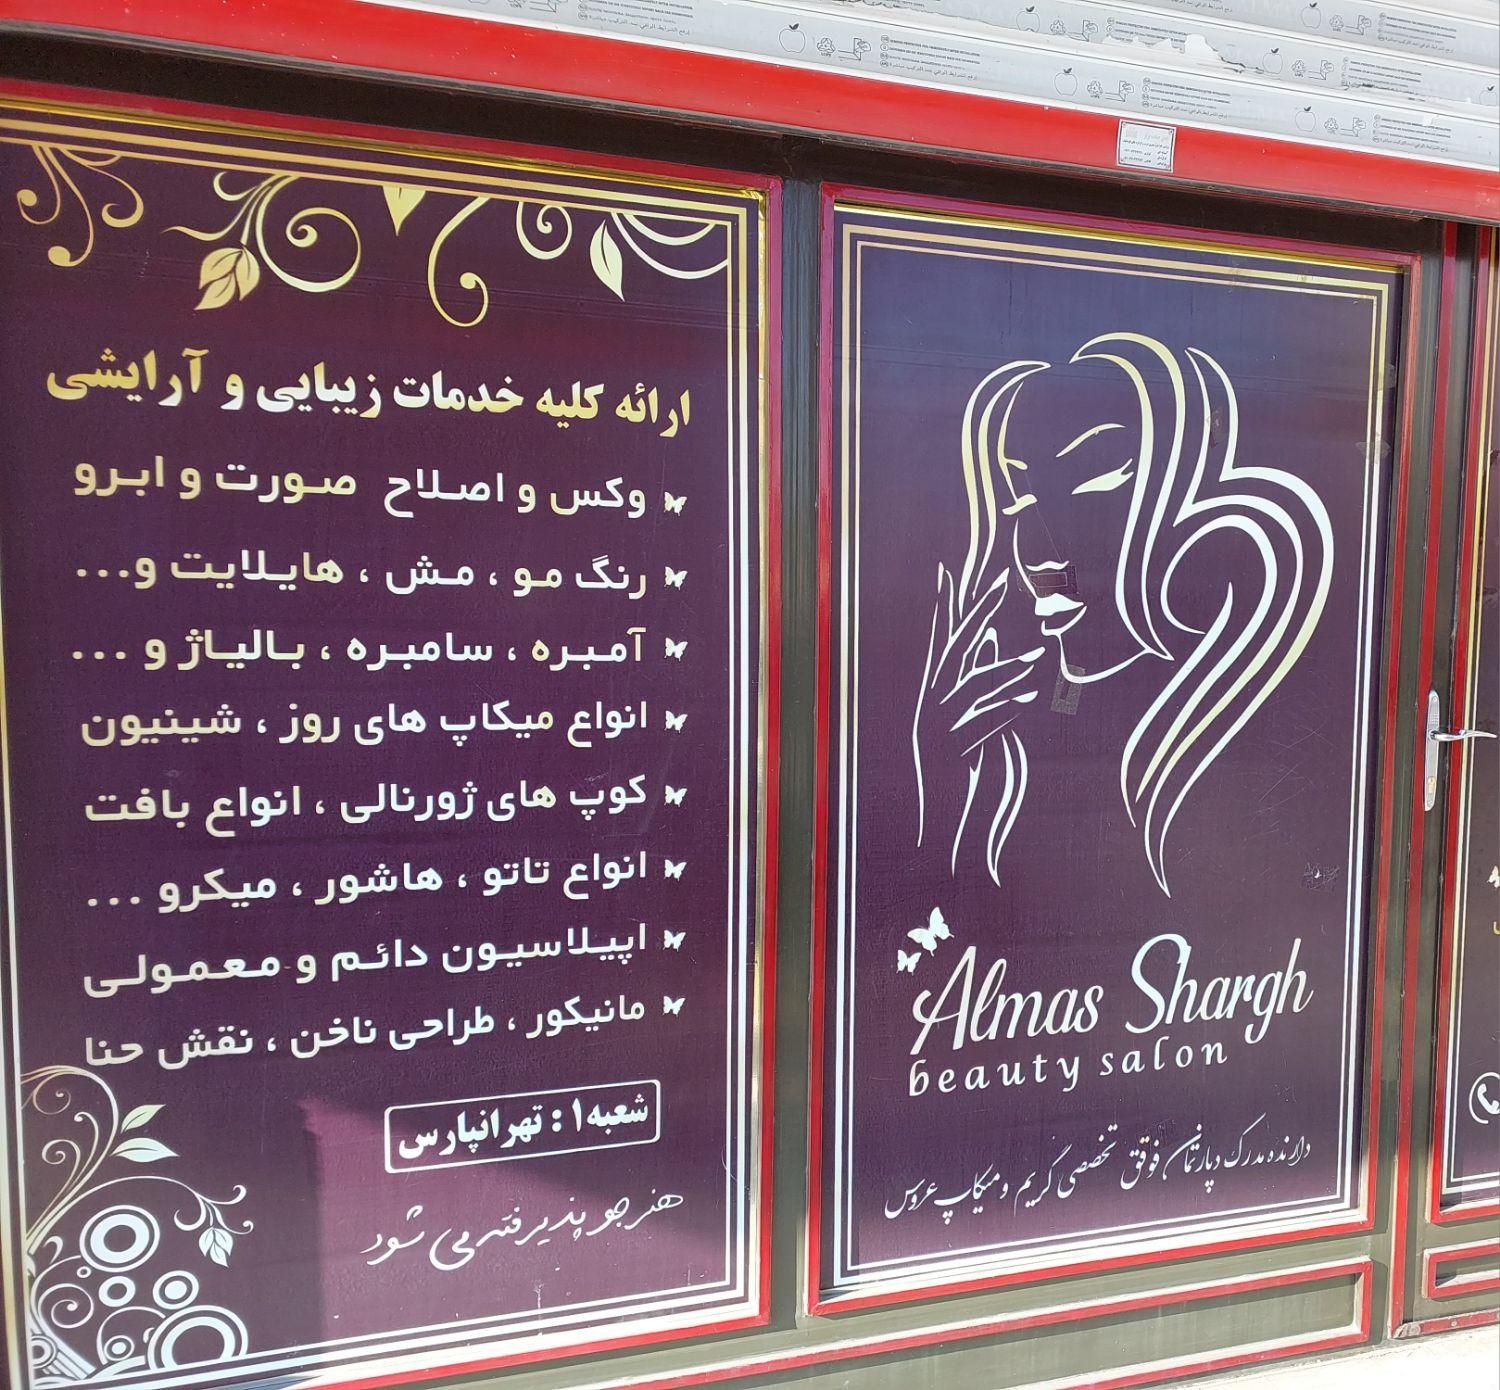 ارائه کلیه خدمات زیبایی و آرایشی
وکس و اصلاح صورت و ابرو
رنگ مو ، مش ، هایلایت و...
آمبره ، سامبره ، بالیاژ و ...
انواع میکاپ های روز ، شینیون
کوپ های ژورنالی ، انواع بافت
انواع تاتو ، هاشور ، میکرو ...
اپیلاسیون دائم و معمولی
مانیکور ، طراحی ناخن ، نقش حنا
شعبه ۱ : تهرانپارس
هنرجو پذیرفته می شود
Almas Shargh
beauty salon
دارنده مدرک دپارتمان فوق تخصصی گریم و میکاپ عروس